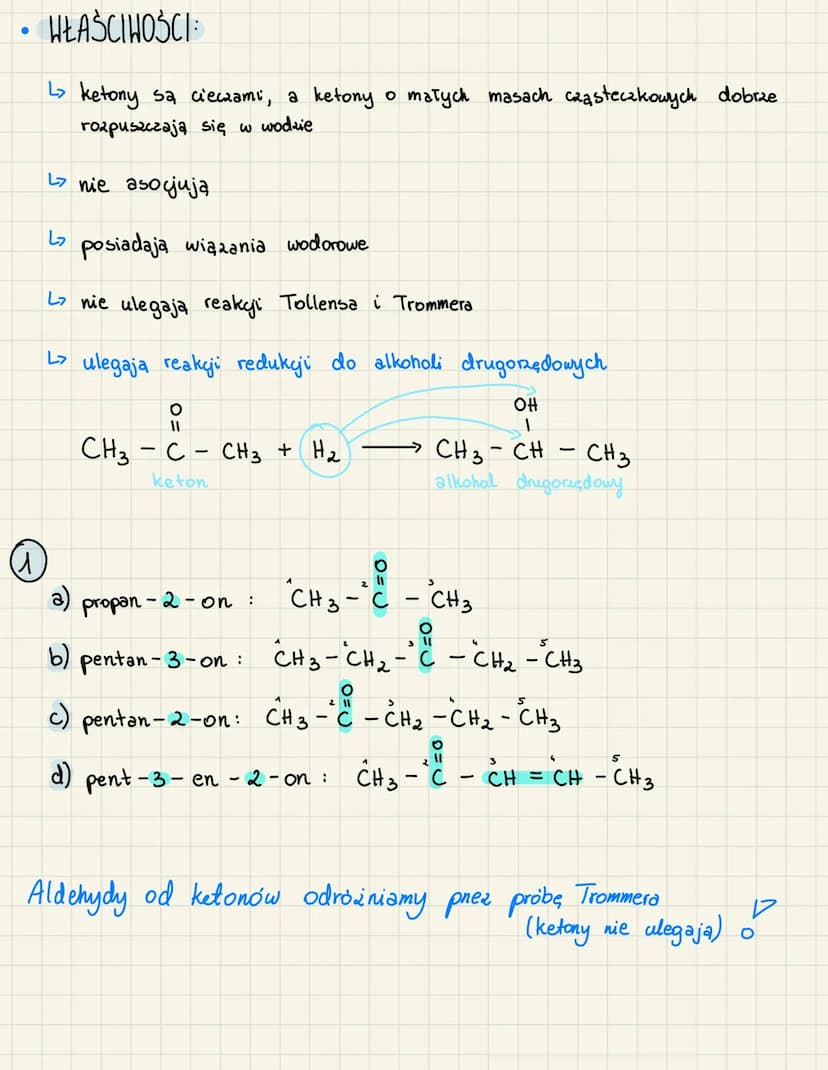 • WŁAŚCIWOŚCI:
↳ ketony są cieczami, a ketony o małych masach cząsteczkowych dobrze
rozpuszczają się w wodzie
↳ nie asocjują
↳ posiadają wiązania wodorowe
↳ nie ulegają reakcji Tollensa i Trommera
↳ ulegają reakcji redukcji do alkoholi drugorzędowych
O OH
|| |
CH₃ – C – CH₃ + H₂ ⟶ CH₃ – CH – CH₃
keton alkohol drugorzędowy
1
O
1 2 || 3
a) propan-2-on : CH₃ – C – CH₃
O
1 2 3 || 4 5
b) pentan-3-on : CH₃ – CH₂ – C – CH₂ – CH₃
O
1 2 || 3 4 5
c) pentan-2-on : CH₃ – C – CH₂ – CH₂ – CH₃
O
1 2 || 3 4 5
d) pent-3-en-2-on : CH₃ – C – CH = CH – CH₃
Aldehydy od ketonów odróżniamy przez próbę Trommera
(ketony nie ulegają) !